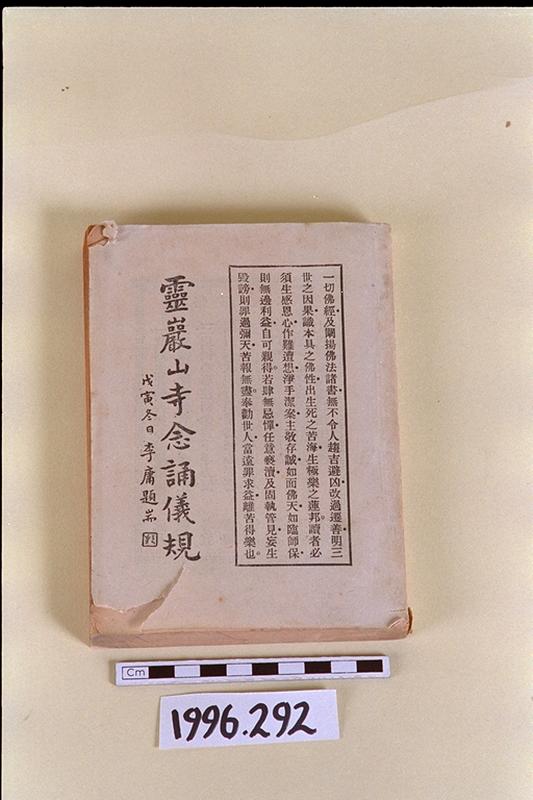 一切佛經・及闡揚佛法諸書・無不令人趨吉避凶・改過遷善・明三
世之因果・識本具之佛性・出生死之苦海・生極樂之蓮邦。讀者必
須生感恩心・作難遭想・淨手潔案・主敬存誠・如面佛天・如臨師保・
則無邊利益・自可親得。若肆無忌憚・任意褻瀆・及固執管見・妄生
毀謗・則罪過彌天・苦報無盡。奉勸世人・當遠罪求益・離苦得樂也。
靈巖山寺念誦儀規
戊寅冬日李庸題耑
Cm
1996.292